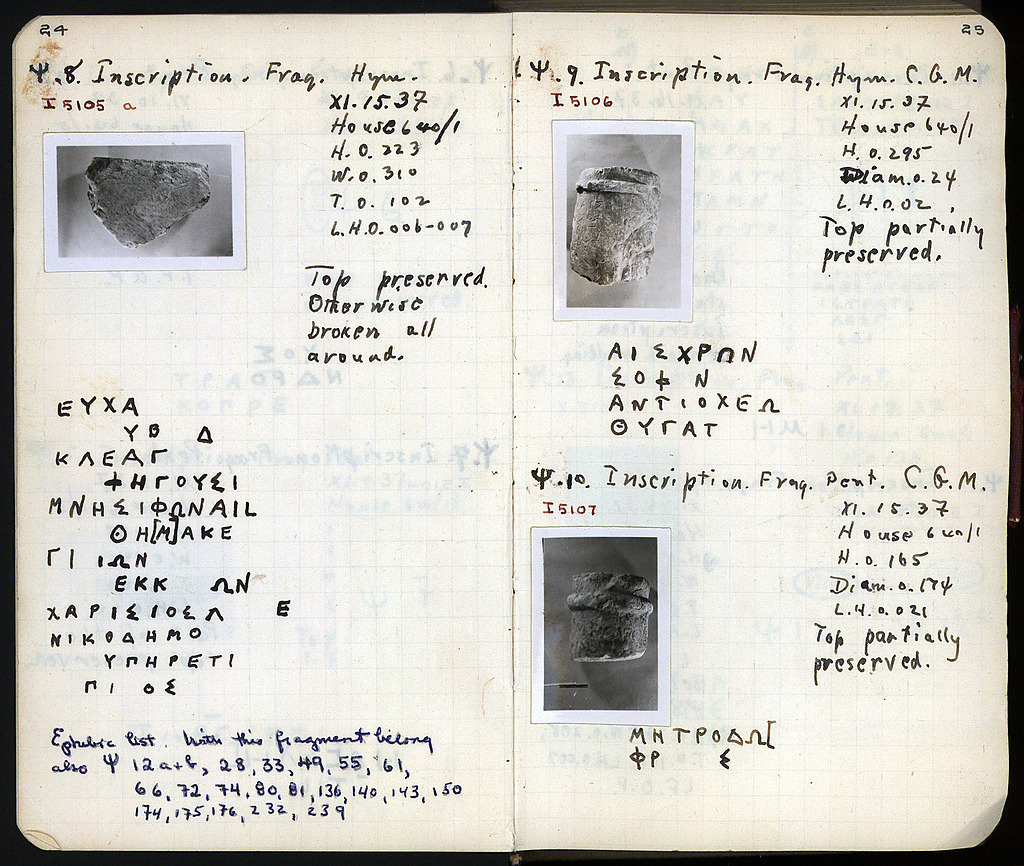 24
Ψ.8. Inscription. Frag. Hym.
I 5105 a
XI.15.37
House 640/1
H. 0.223
W. 0.310
T. 0.102
L.H. 0.006-007
Top preserved.
Otherwise
broken all
around.
ΕΥΧΑ
ΥΒ Δ
ΚΛΕΑΓ
ΦΗΓΟΥΣΙ
ΜΝΗΣΙΦΩΝΑΙL
ΘΗ[Μ]ΑΚΕ
ΓΙ ΙΩΝ
ΕΚΚ ΩΝ
ΧΑΡΙΣΙΟΣΛ Ε
ΝΙΚΟΔΗΜΟ
ΥΠΗΡΕΤΙ
ΠΙ ΟΣ
Ephebic list. With this fragment belong
also Ψ 12 a+b, 28, 33, 49, 55, 61,
66, 72, 74, 80, 81, 136, 140, 143, 150
174, 175, 176, 232, 239
25
Ψ.9. Inscription. Frag. Hym. C.G.M.
I 5106
XI.15.37
House 640/1
H. 0.295
Diam. 0.24
L.H. 0.02
Top partially
preserved.
ΑΙΣΧΡΩΝ
ΣΟΦ Ν
ΑΝΤΙΟΧΕΩ
ΘΥΓΑΤ
Ψ.10. Inscription. Frag. Pent. C.G.M.
I 5107
XI.15.37
House 640/1
H. 0.165
Diam. 0.174
L.H. 0.021
Top partially
preserved.
ΜΗΤΡΟΔΩ[
ΦΡ Σ